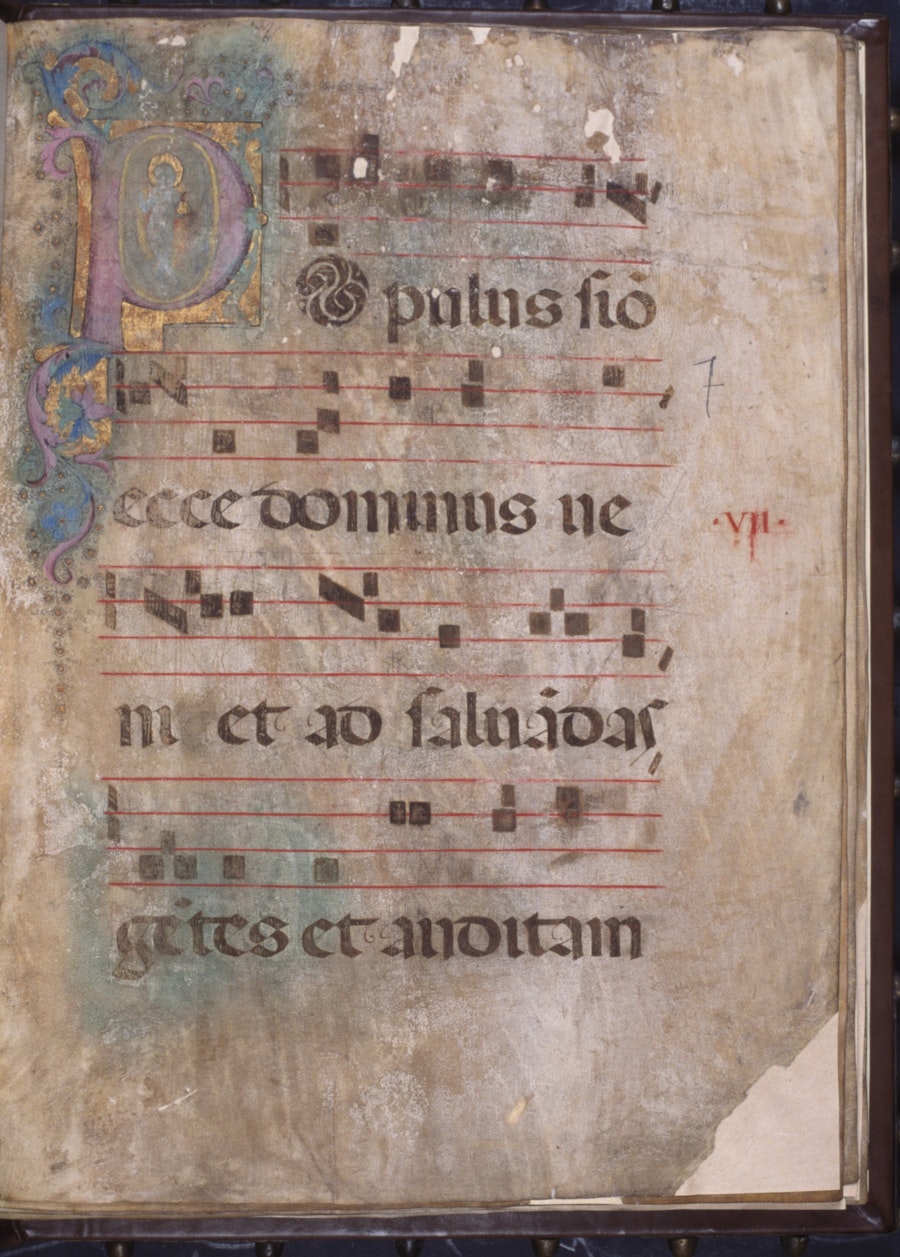 POpulus siō
7
ecce dominus ne
·VII·
ni et ad saluādas
gētes et auditam